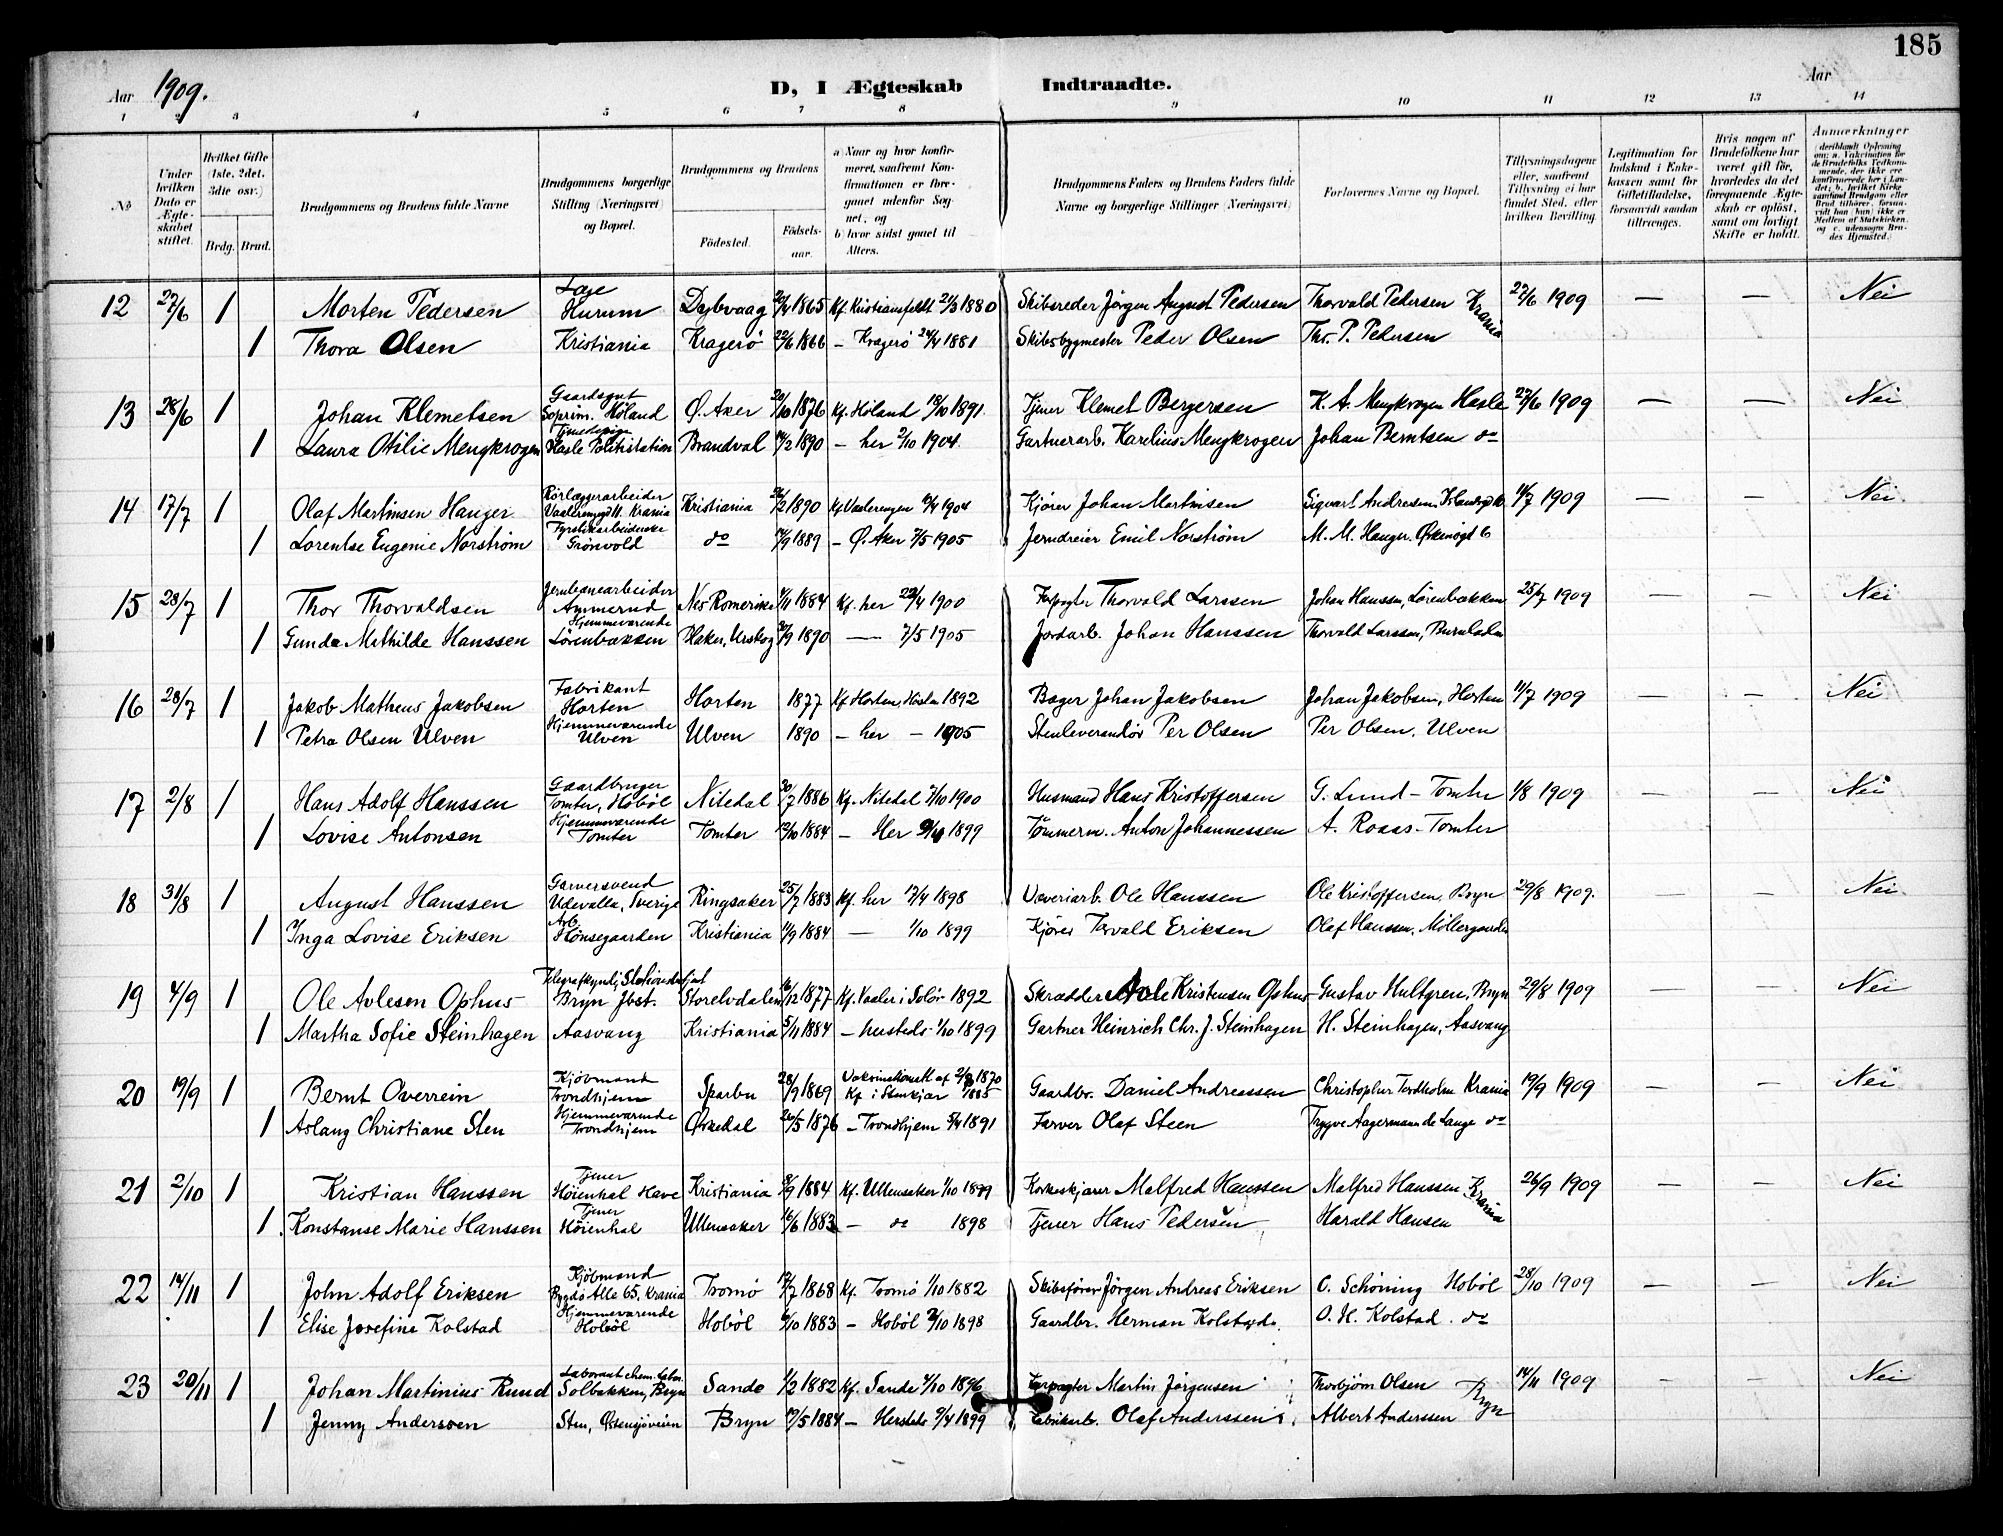 185
Aar 1909.
D, I Ægteskab Indtraadte.
Aar
1 2 3 4 5 6 7 8 9 10 11 12 13 14
No
Under hvilken Dato er Ægteskabet stiftet.
Hvilket Gifte (1ste, 2det, 3die osv.)
Brdg. Brud.
Brudgommens og Brudens fulde Navne
Brudgommens borgerlige Stilling (Næringsvei) og Bopæl.
Brudgommens og Brudens
Fødested. Fødselsaar.
a) Naar og hvor konfirmeret, saafremt Konfirmationen er foregaaet udenfor Sognet, og
b) hvor sidst gaaet til Alters.
Brudgommens Faders og Brudens Faders fulde Navne og borgerlige Stillinger (Næringsvei)
Forlovernes Navne og Bopæl.
Tillysningsdagene eller, saafremt Tillysning ei har fundet Sted, efter hvilken Bevilling
Legitimation for Indskud i Enkekassen samt for Giftetilladelse, forsaavidt saadan tiltrænges.
Hvis nogen af Brudefolkene har været gift før, hvorledes da det foregaaende Ægteskab er opløst, samt om lovligt Skifte er holdt.
Anmærkninger
12 27/6 1 Morten Pedersen Hurum Dybvaag 1865 Kf. Kristiansfeldt 21/3 1880 Skibsreder Jörgen August Pedersen Thorvald Pedersen Krania 27/6 1909 — — Nei
1 Thora Olsen Kristiania Kragerö 22/6 1866 — Kragerö 24/4 1881 Skibsbygmester Peder Olsen Thr. P. Pedersen
13 28/6 1 Johan Klemetsen Gaardsgut Höland Ø. Aker 20/10 1876 Kf. Höland 18/10 1891 Tjener Klemet Bergersen K. A. Mengkrogen Hasle 27/6 1909 — — Nei
1 Laura Otilie Mengkrogen Tjenestepige Hasle Politistation Brandval 14/2 1890 — her 2/10 1904. Gartnerarb. Karelius Mengkrogen Johan Berntsen do
14 17/7 1 Olaf Martinsen Hauger Rörlæggerarbeider Krania Kristiania 1890 Kf Vaalerengen 1904 Kjörer Johan Martinsen Sigvart Andresen 11/7 1909 — — Nei
1 Lorentse Eugenie Norström Fyrstikarbeiderske Grönvold do 1889 — Ø. Aker 7/5 1905 Jerndreier Emil Norström M. M. Hauger
15 28/7 1 Thor Thorvaldsen Jernbanearbeider Ammerud Nes Romerike 1884 Kf. her 22/4 1900 Forpagter Thorvald Larssen Johan Hanssen, Lörenbakken 25/7 1909 — — Nei
1 Gunda Mathilde Hanssen Hjemmeværende Lörenbakken Blaker, Urskog 30/9 1890 — 7/5 1905 Jordarb. Johan Hanssen Thorvald Larssen
16 28/7 1 Jakob Matheus Jakobsen Fabrikant Horten Horten 1877 Kf Horten 1892 Bager Johan Jakobsen Johan Jakobsen, Horten 11/7 1909 — — Nei
1 Petra Olsen Ulven Hjemmeværende Ulven Ulven 1890 — her — 1905 Stenleverandör Per Olsen Per Olsen, Ulven
17 2/8 1 Hans Adolf Hanssen Gaardbruger Tomter, Hoböl Nitedal 30/7 1886 Kf. Nitedal 7/10 1900 Husmand Hans Kristoffersen G. Lund — Tomter 1/8 1909 — — Nei
1 Lovise Antonsen Hjemmeværende Tomter Tomter 12/10 1884 — Her 1899 Tömmerm. Anton Johannessen A. Roaas — Tomter
18 31/8 1 August Hanssen Garversvend Udevalla, Sverige Ringsaker 25/7 1883 Kf. her 17/4 1898 Væveriarb. Ole Hanssen Ole Kristoffersen, Bryn 29/8 1909. — — Nei
1 Inga Lovise Eriksen Arb. Hönsegaarden Kristiania 11/9 1884 — 1/10 1899 Kjörer Torvald Eriksen Olaf Hanssen, Möllergaarden
19 4/9 1 Ole Avlesen Ophus Bryn Jbst. Storelvdalen 16/12 1877 Kf. Vaaler i Solör 1892 Skrædder Avle Kristensen Ophus Gustav Hultgren, Bryn 29/8 1909 — — Nei
1 Martha Sofie Steinhagen Aasvang Kristiania 5/11 1884 — hersteds 1/10 1899 Gartner Heinrich Chr. J. Steinhagen H. Steinhagen, Aasvang
20 19/9 1 Bernt Overrein Kjöbmand Trondhjem Sparbu 28/9 1869 Vakcinationsatt. af 1870 Kf. i Stenkjær 1885 Gaardbr. Daniel Andreassen Christopher Tordholm Krania 19/9 1909 — — Nei
1 Aslaug Christiane Sten Hjemmeværende Trondhjem Ørkedal 26/5 1876 — Trondhjem 5/4 1891 Farver Olaf Steen Trygve Aagermann de Lange do
21 2/10 1 Kristian Hanssen Tjener Höienhal Have Kristiania 1884 Kf. Ullensaker 1/10 1899 Korkeskjærer Malfred Hanssen Malfred Hanssen Krania 26/9 1909 — — Nei
1 Konstanse Marie Hanssen Tjener Höienhal Ullensaker 16/6 1883 — do 1898 Tjener Hans Pedersen Harald Hansen
22 14/11 1 John Adolf Eriksen Kjöbmand Bygdö Alle 65, Krania Tromö 1868 Kf. Tromö 1/10 1882 Skibsförer Jörgen Andreas Eriksen O. Schöning Hoböl 28/10 1909 — — Nei
1 Elise Josefine Kolstad Hjemmeværende Hoböl Hoböl 1883 — Hoböl 2/10 1898 Gaardbr. Herman Kolstad O. H. Kolstad do
23 20/11 1 Johan Martinius Ruud Solbakken, Bryn Sande 1/2 1882 Kf. Sande 4/10 1896 Forpagter Martin Jörgensen Thorbjörn Olsen Bryn 14/11 1909 — Nei
1 Jenny Anderssen Sten, Østensjöveien Bryn 17/5 1884 — Hersteds 9/4 1899 Fabrikarb. Olaf Anderssen Albert Anderssen